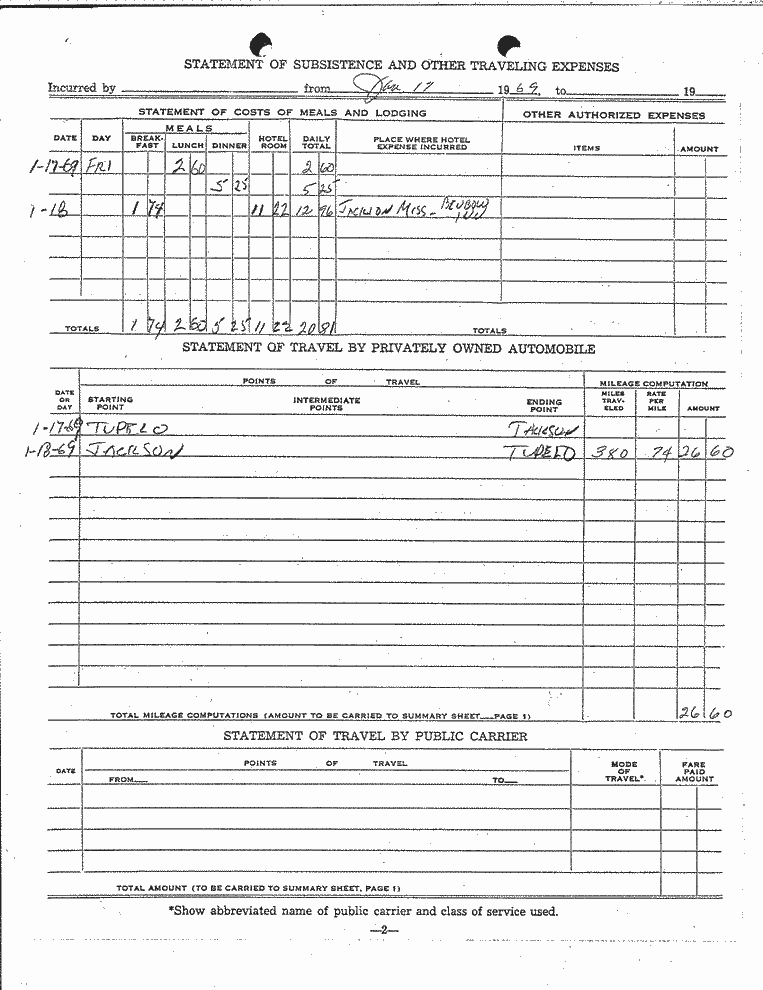 STATEMENT OF SUBSISTENCE AND OTHER TRAVELING EXPENSES
Incurred by from Jan 17 1969, to 19
STATEMENT OF COSTS OF MEALS AND LODGING OTHER AUTHORIZED EXPENSES
MEALS
DATE DAY BREAK-FAST LUNCH DINNER HOTEL ROOM DAILY TOTAL PLACE WHERE HOTEL EXPENSE INCURRED ITEMS AMOUNT
1-17-69 FRI 2 60 2 60
5 25 5 25
1-18 1 74 11 22 12 96 JACKSON MISS-
TOTALS 1 74 2 60 5 25 11 22 20 81 TOTALS
STATEMENT OF TRAVEL BY PRIVATELY OWNED AUTOMOBILE
POINTS OF TRAVEL MILEAGE COMPUTATION
DATE OR DAY STARTING POINT INTERMEDIATE POINTS ENDING POINT MILES TRAV-ELED RATE PER MILE AMOUNT
1-17-69 TUPELO JACKSON
1-18-69 JACKSON TUPELO 380 26 60
TOTAL MILEAGE COMPUTATIONS (AMOUNT TO BE CARRIED TO SUMMARY SHEET—PAGE 1) 26 60
STATEMENT OF TRAVEL BY PUBLIC CARRIER
DATE POINTS OF TRAVEL MODE OF TRAVEL* FARE PAID AMOUNT
FROM— TO—
TOTAL AMOUNT (TO BE CARRIED TO SUMMARY SHEET, PAGE 1)
*Show abbreviated name of public carrier and class of service used.
—2—